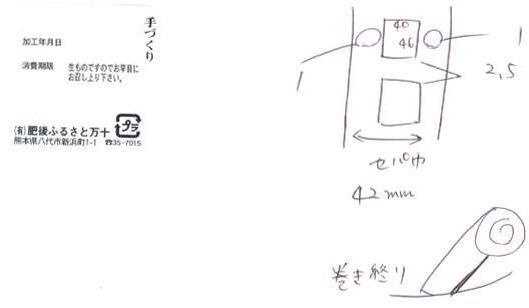 手づくり
加工年月日
消費期限 生ものですのでお早目に
お召し上り下さい。
プラ
(有)肥後ふるさと万十
熊本県八代市新浜町1-1 ☎35-7015
40
46
1
1
2,5
セパ巾
42mm
巻き終り